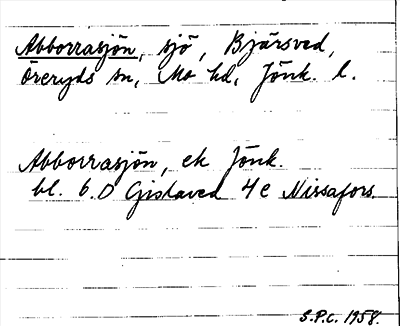 Abborrasjön, sjö, Bjärsved,
Öreryds sn, Mo hd, Jönk. l.
Abborrasjön, ek Jönk.
bl. 6.D Gislaved 4e Nissafors.
S.P.C. 1958.